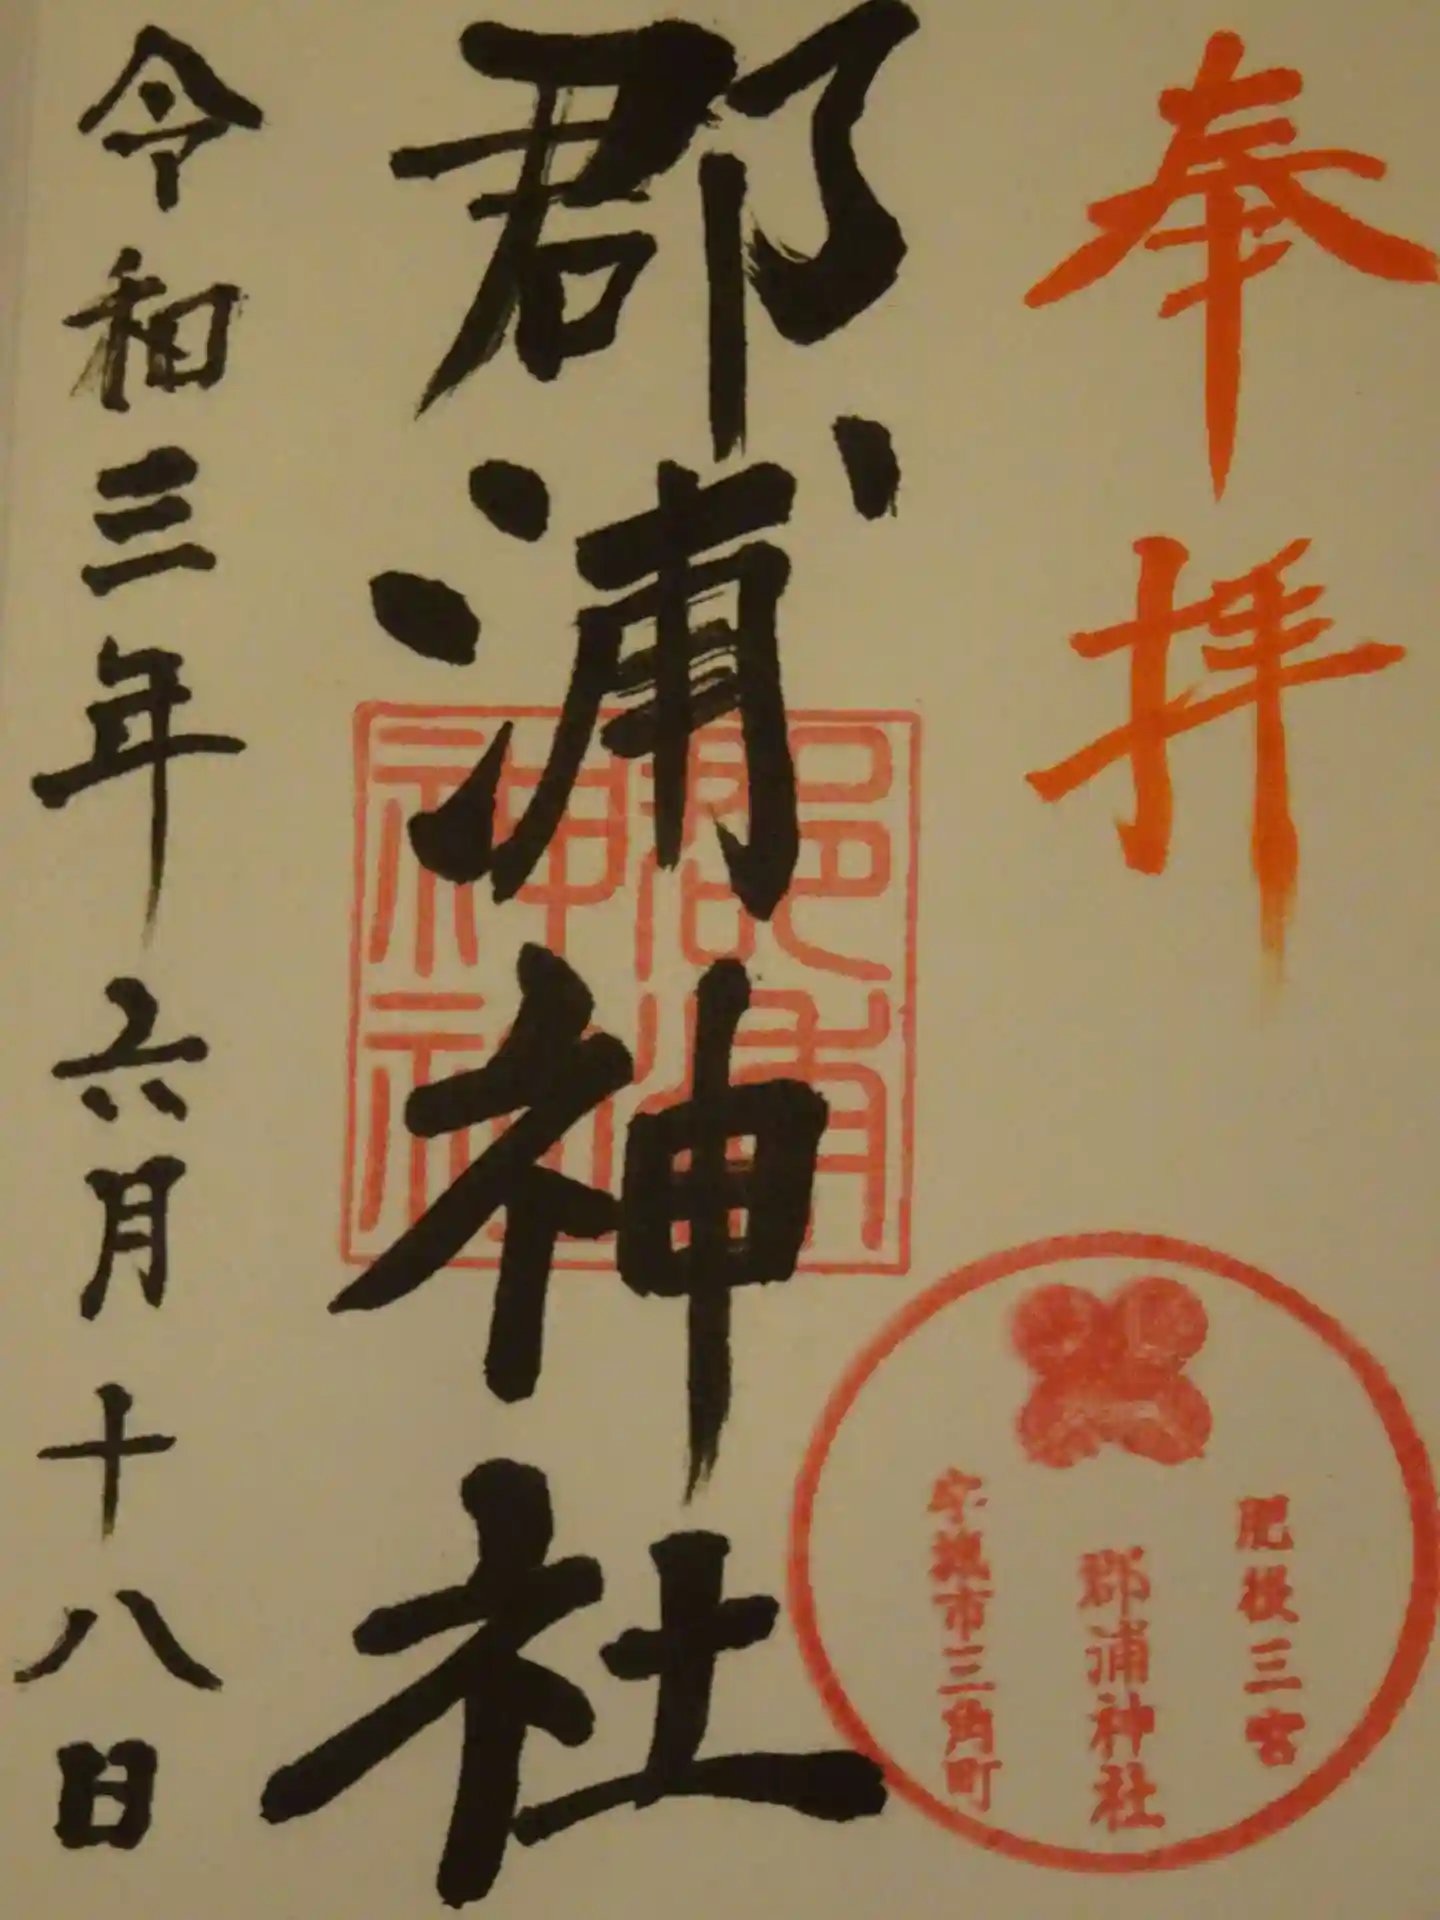 奉拝
肥後三宮
郡浦神社
宇城市三角町
郡浦神社
郡浦
神社
令和三年六月十八日